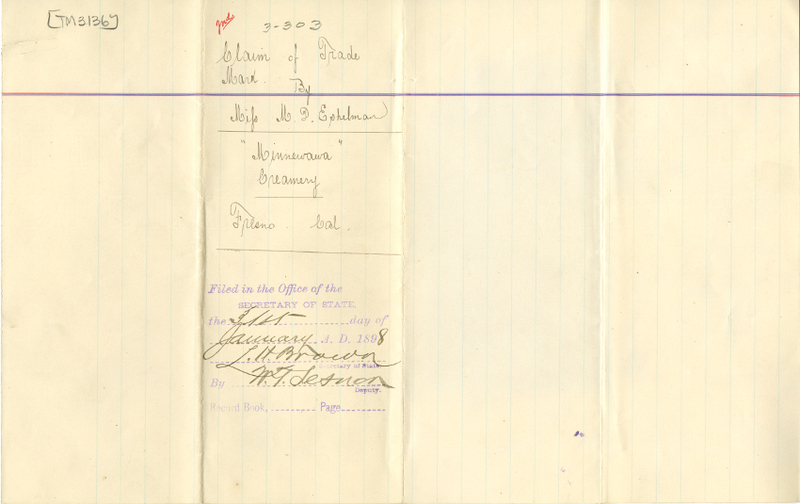 [TM3136]
3-303
Claim of Trade
Mark.
By
Miss M. D. Eshelman
"Minnewawa"
Creamery
Fresno. Cal.
Filed in the Office of the
SECRETARY OF STATE,
the 31st day of
January A. D. 1898
L. H. Brown
Secretary of State.
By W. T. Sesnon
Deputy.
Record Book, Page